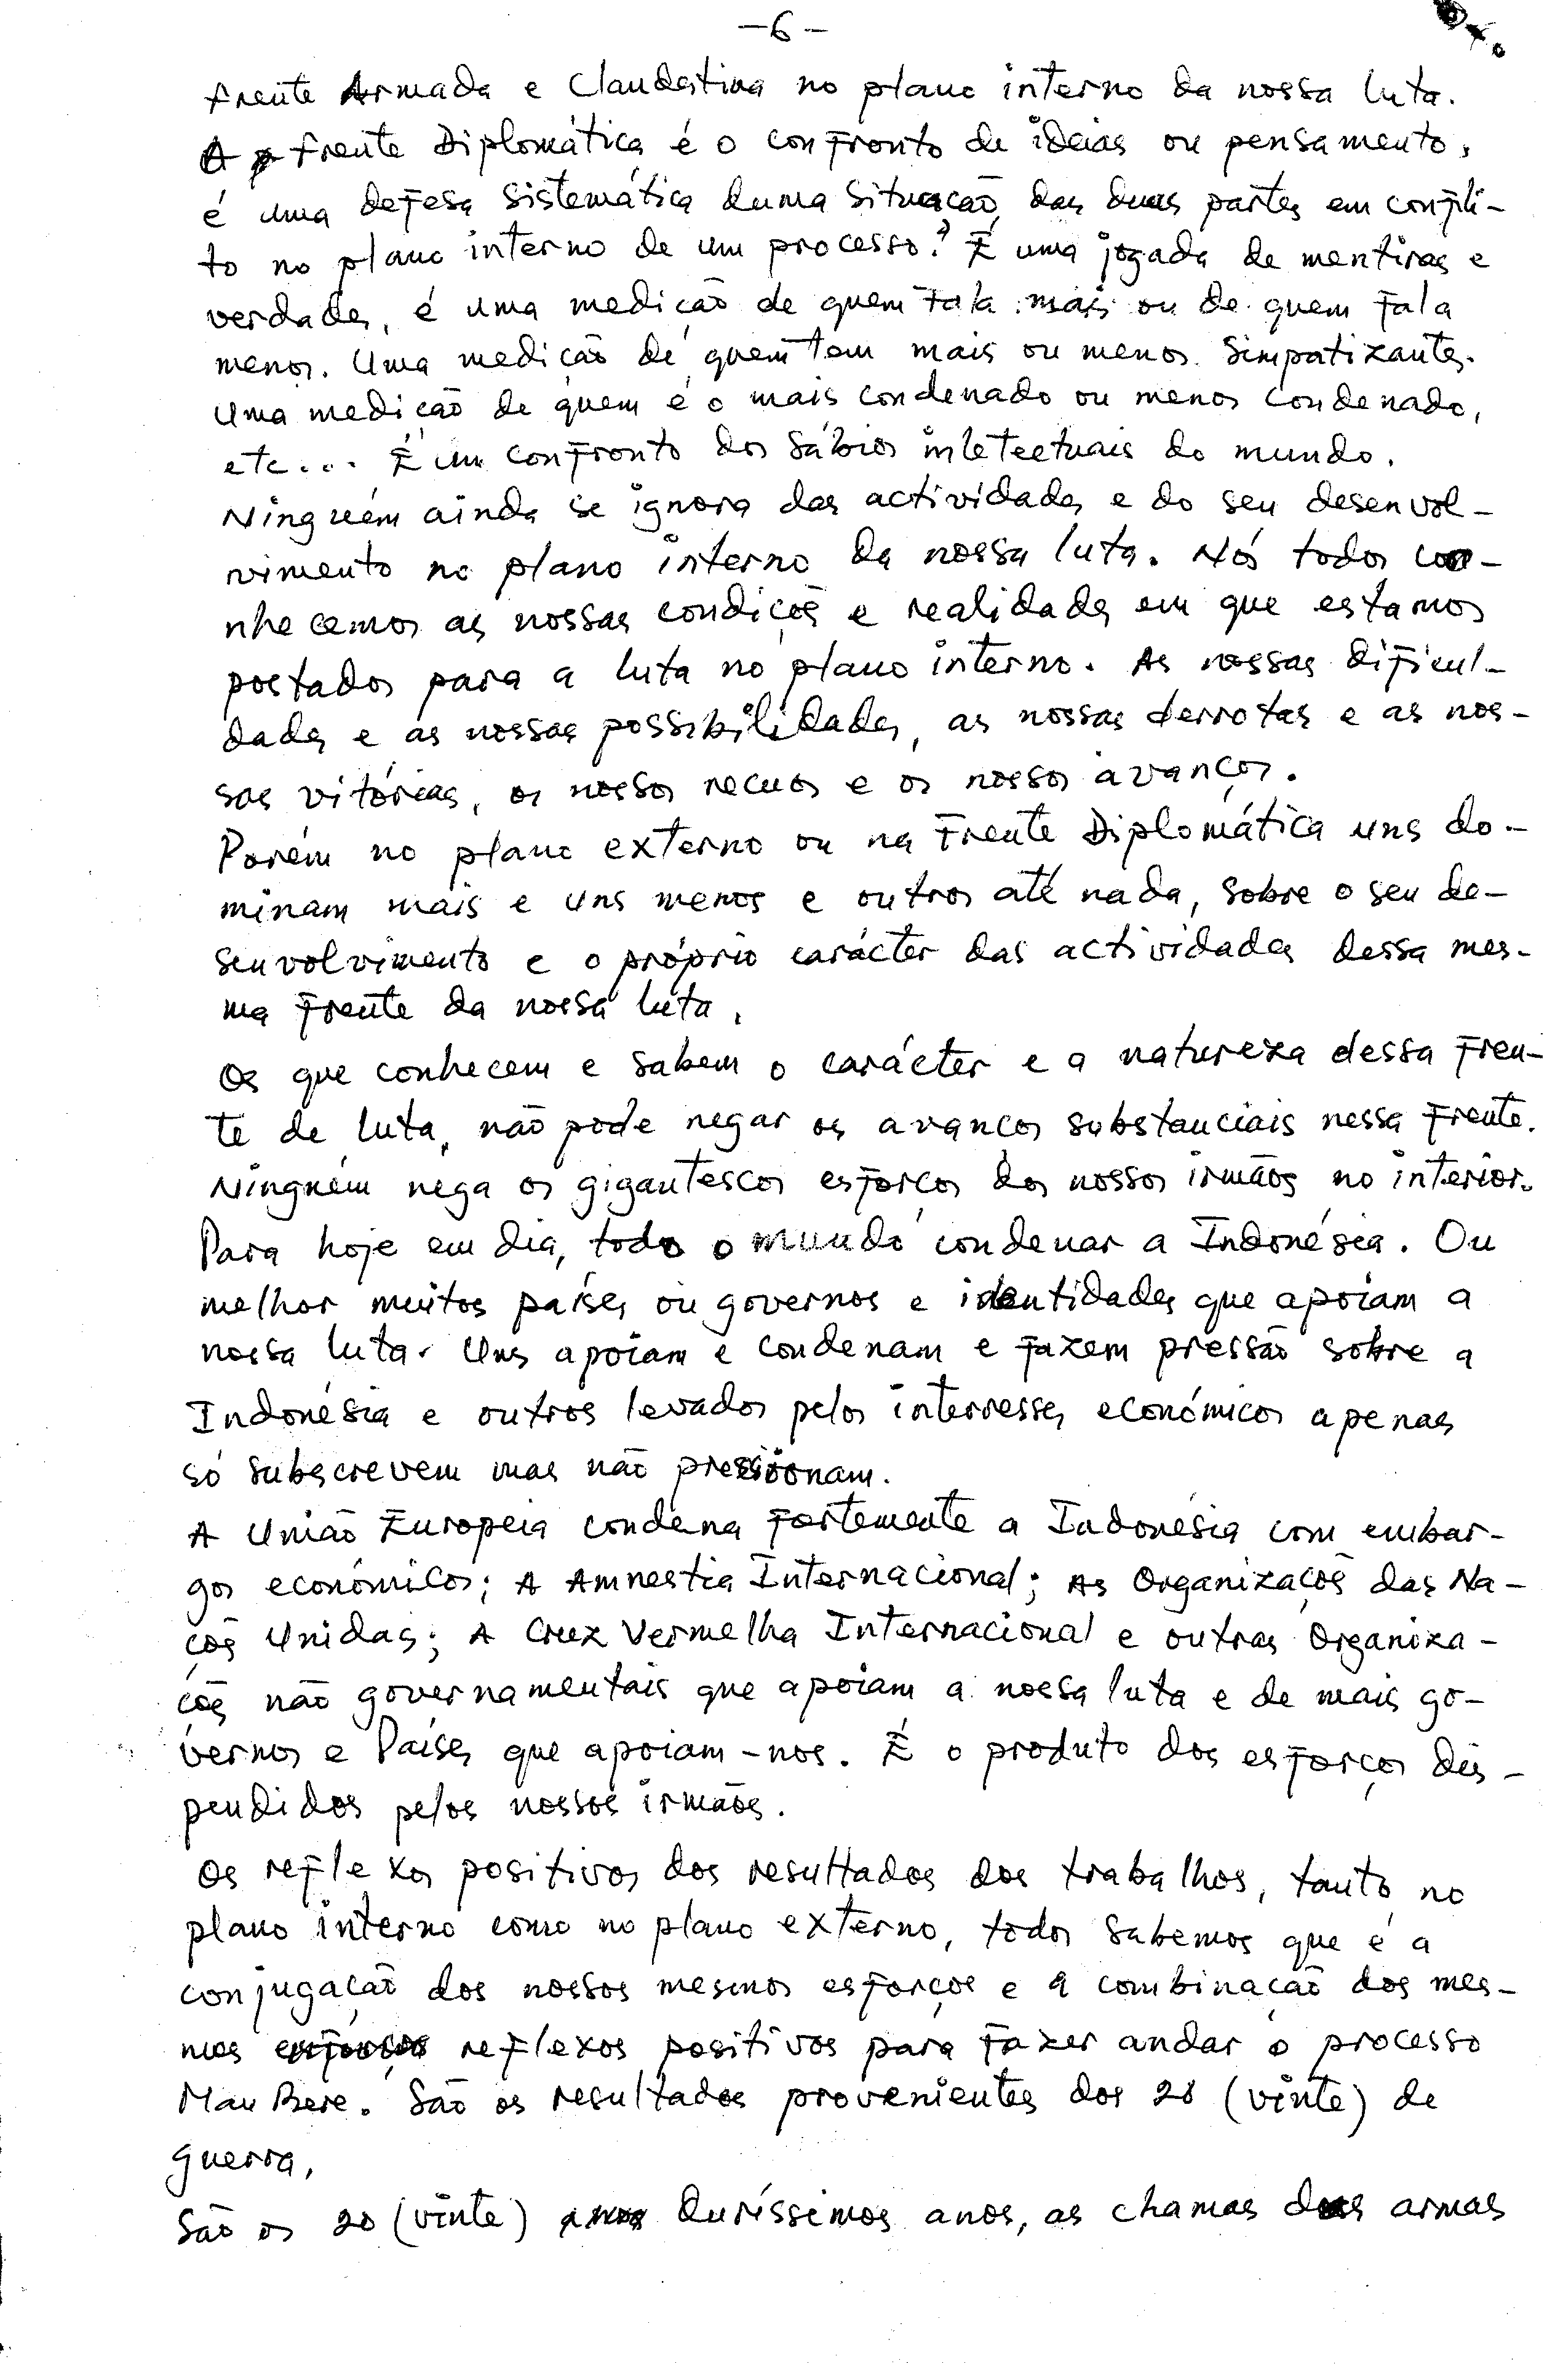 -6-
frente Armada e Clandestina no plano interno da nossa luta.
A frente Diplomática é o confronto de ideias ou pensamento,
é uma defesa sistemática duma situação das duas partes em confli-
to no plano interno de um processo? É uma jogada de mentiras e
verdades, é uma medição de quem fala mais ou de quem fala
menos. Uma medição de quem tem mais ou menos simpatizantes.
Uma medição de quem é o mais condenado ou menos condenado,
etc... É um confronto dos sábios intetectuais do mundo.
Ninguém ainda se ignora das actividades e do seu desenvol-
vimento no plano interno da nossa luta. Nós todos co-
nhecemos as nossas condições e realidades em que estamos
postados para a luta no plano interno. As nossas dificul-
dades e as nossas possibilidades, as nossas derrotas e as nos-
sas vitórias, os nossos recuos e os nossos avanços.
Porém no plano externo ou na Frente Diplomática uns do-
minam mais e uns menos e outros até nada, sobre o seu de-
senvolvimento e o próprio carácter das actividades dessa mes-
ma frente da nossa luta.
Os que conhecem e sabem o carácter e a natureza dessa Fren-
te de luta, não pode negar os avanços substanciais nessa Frente.
Ninguém nega os gigantescos esforços dos nossos irmãos no interior.
Para hoje em dia, todo o mundo condenar a Indonésia. Ou
melhor muitos países ou governos e identidades que apoiam a
nossa luta. Uns apoiam e condenam e fazem pressão sobre a
Indonésia e outros levados pelos interresses económicos apenas
só subscrevem mas não pressionam.
A União Europeia condena fortemente a Indonésia com embar-
gos económicos; A Amnestia Internacional; As Organizações das Na-
ções Unidas; A Cruz Vermelha Internacional e outras Organiza-
ções não governamentais que apoiam a nossa luta e de mais go-
vernos e Países que apoiam-nos. É o produto dos esforços dis-
pendidos pelos nossos irmãos.
Os reflexos positivos dos resultados dos trabalhos, tanto no
plano interno como no plano externo, todos sabemos que é a
conjugação dos nossos mesmos esforços e a combinação dos mes-
mos reflexos positivos para fazer andar o processo
Mau Bere. São os resultados provenientes dos 20 (vinte) de
guerra,
São os 20 (vinte) Duríssimos anos, as chamas das armas